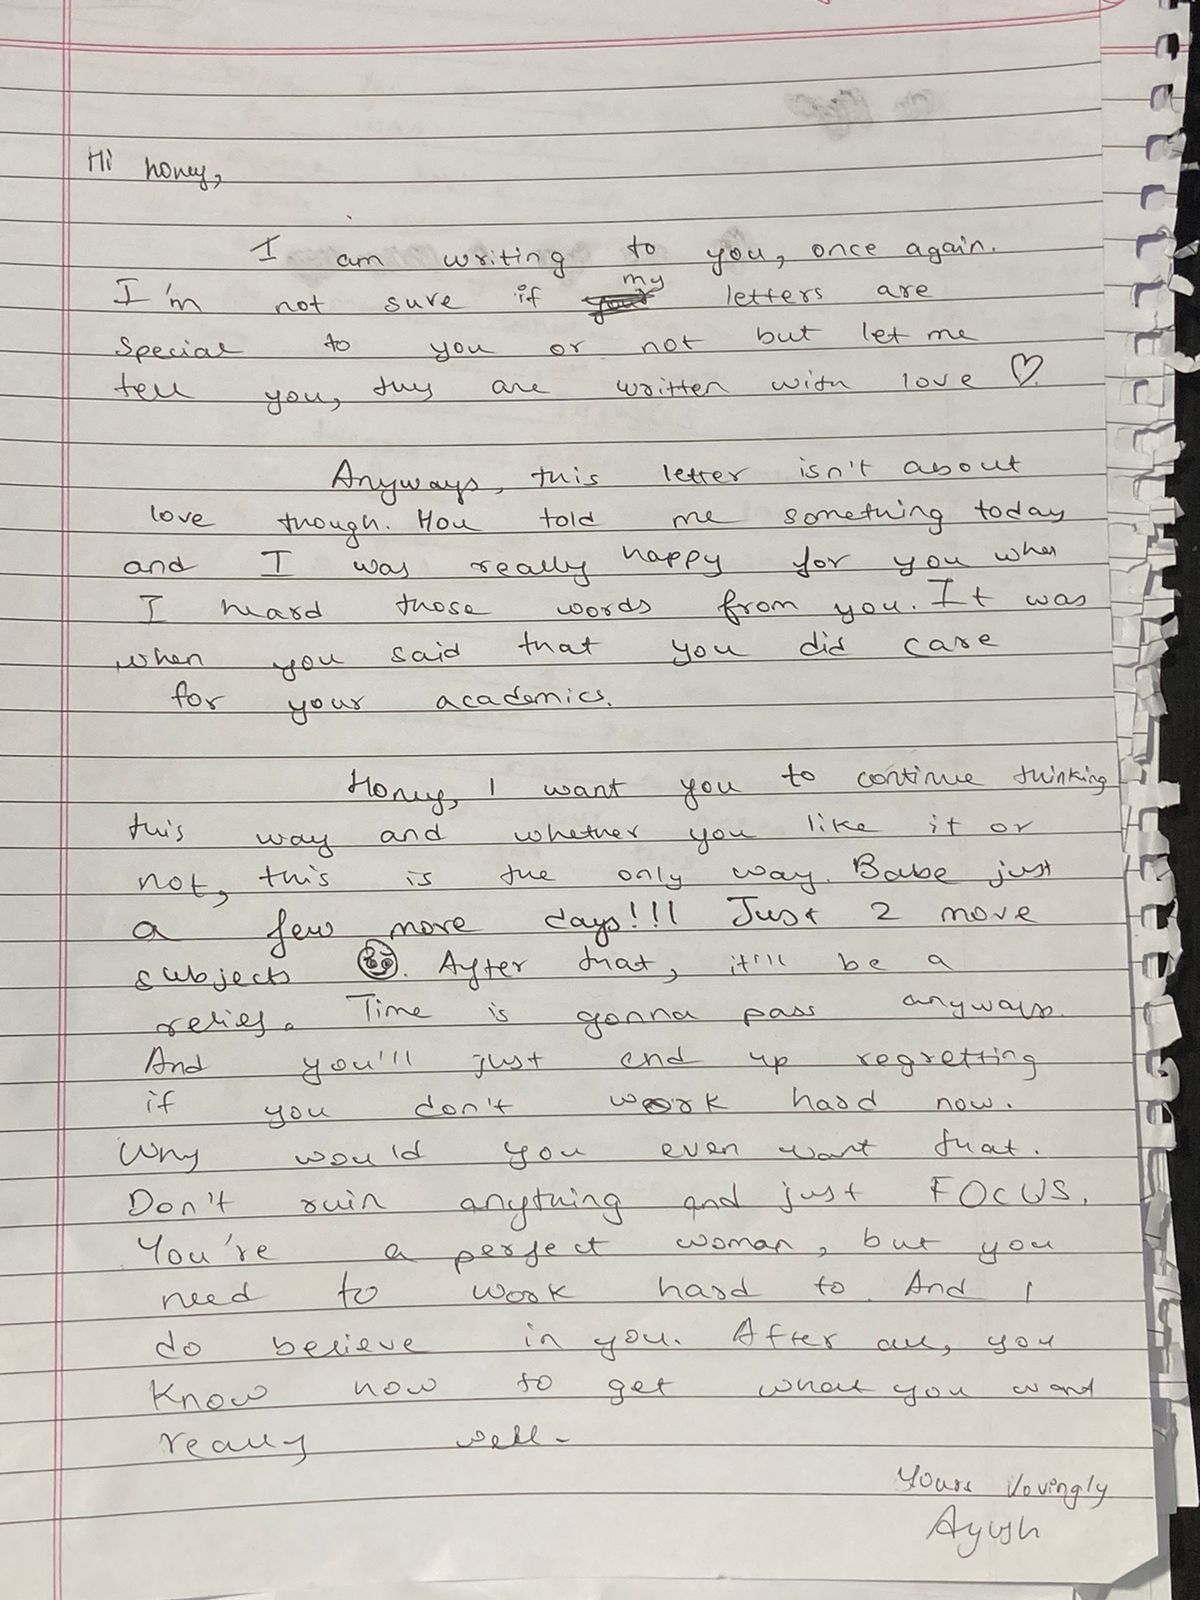 Hi honey,
I am writing to you, once again.
I'm not sure if my letters are
special to you or not but let me
tell you, they are written with love ♡.
Anyways, this letter isn't about
love though. You told me something today
and I was really happy for you when
I heard those words from you. It was
when you said that you did care
for your academics.
Honey, I want you to continue thinking
this way and whether you like it or
not, this is the only way. Babe just
a few more days!!! Just 2 more
subjects. After that, it'll be a
relief. Time is gonna pass anyways.
And you'll just end up regretting
if you don't work hard now.
Why would you even want that.
Don't ruin anything and just FOCUS.
You're a perfect woman, but you
need to work hard to. And I
do believe in you. After all, you
know how to get what you want
really well.
Yours lovingly
Ayush